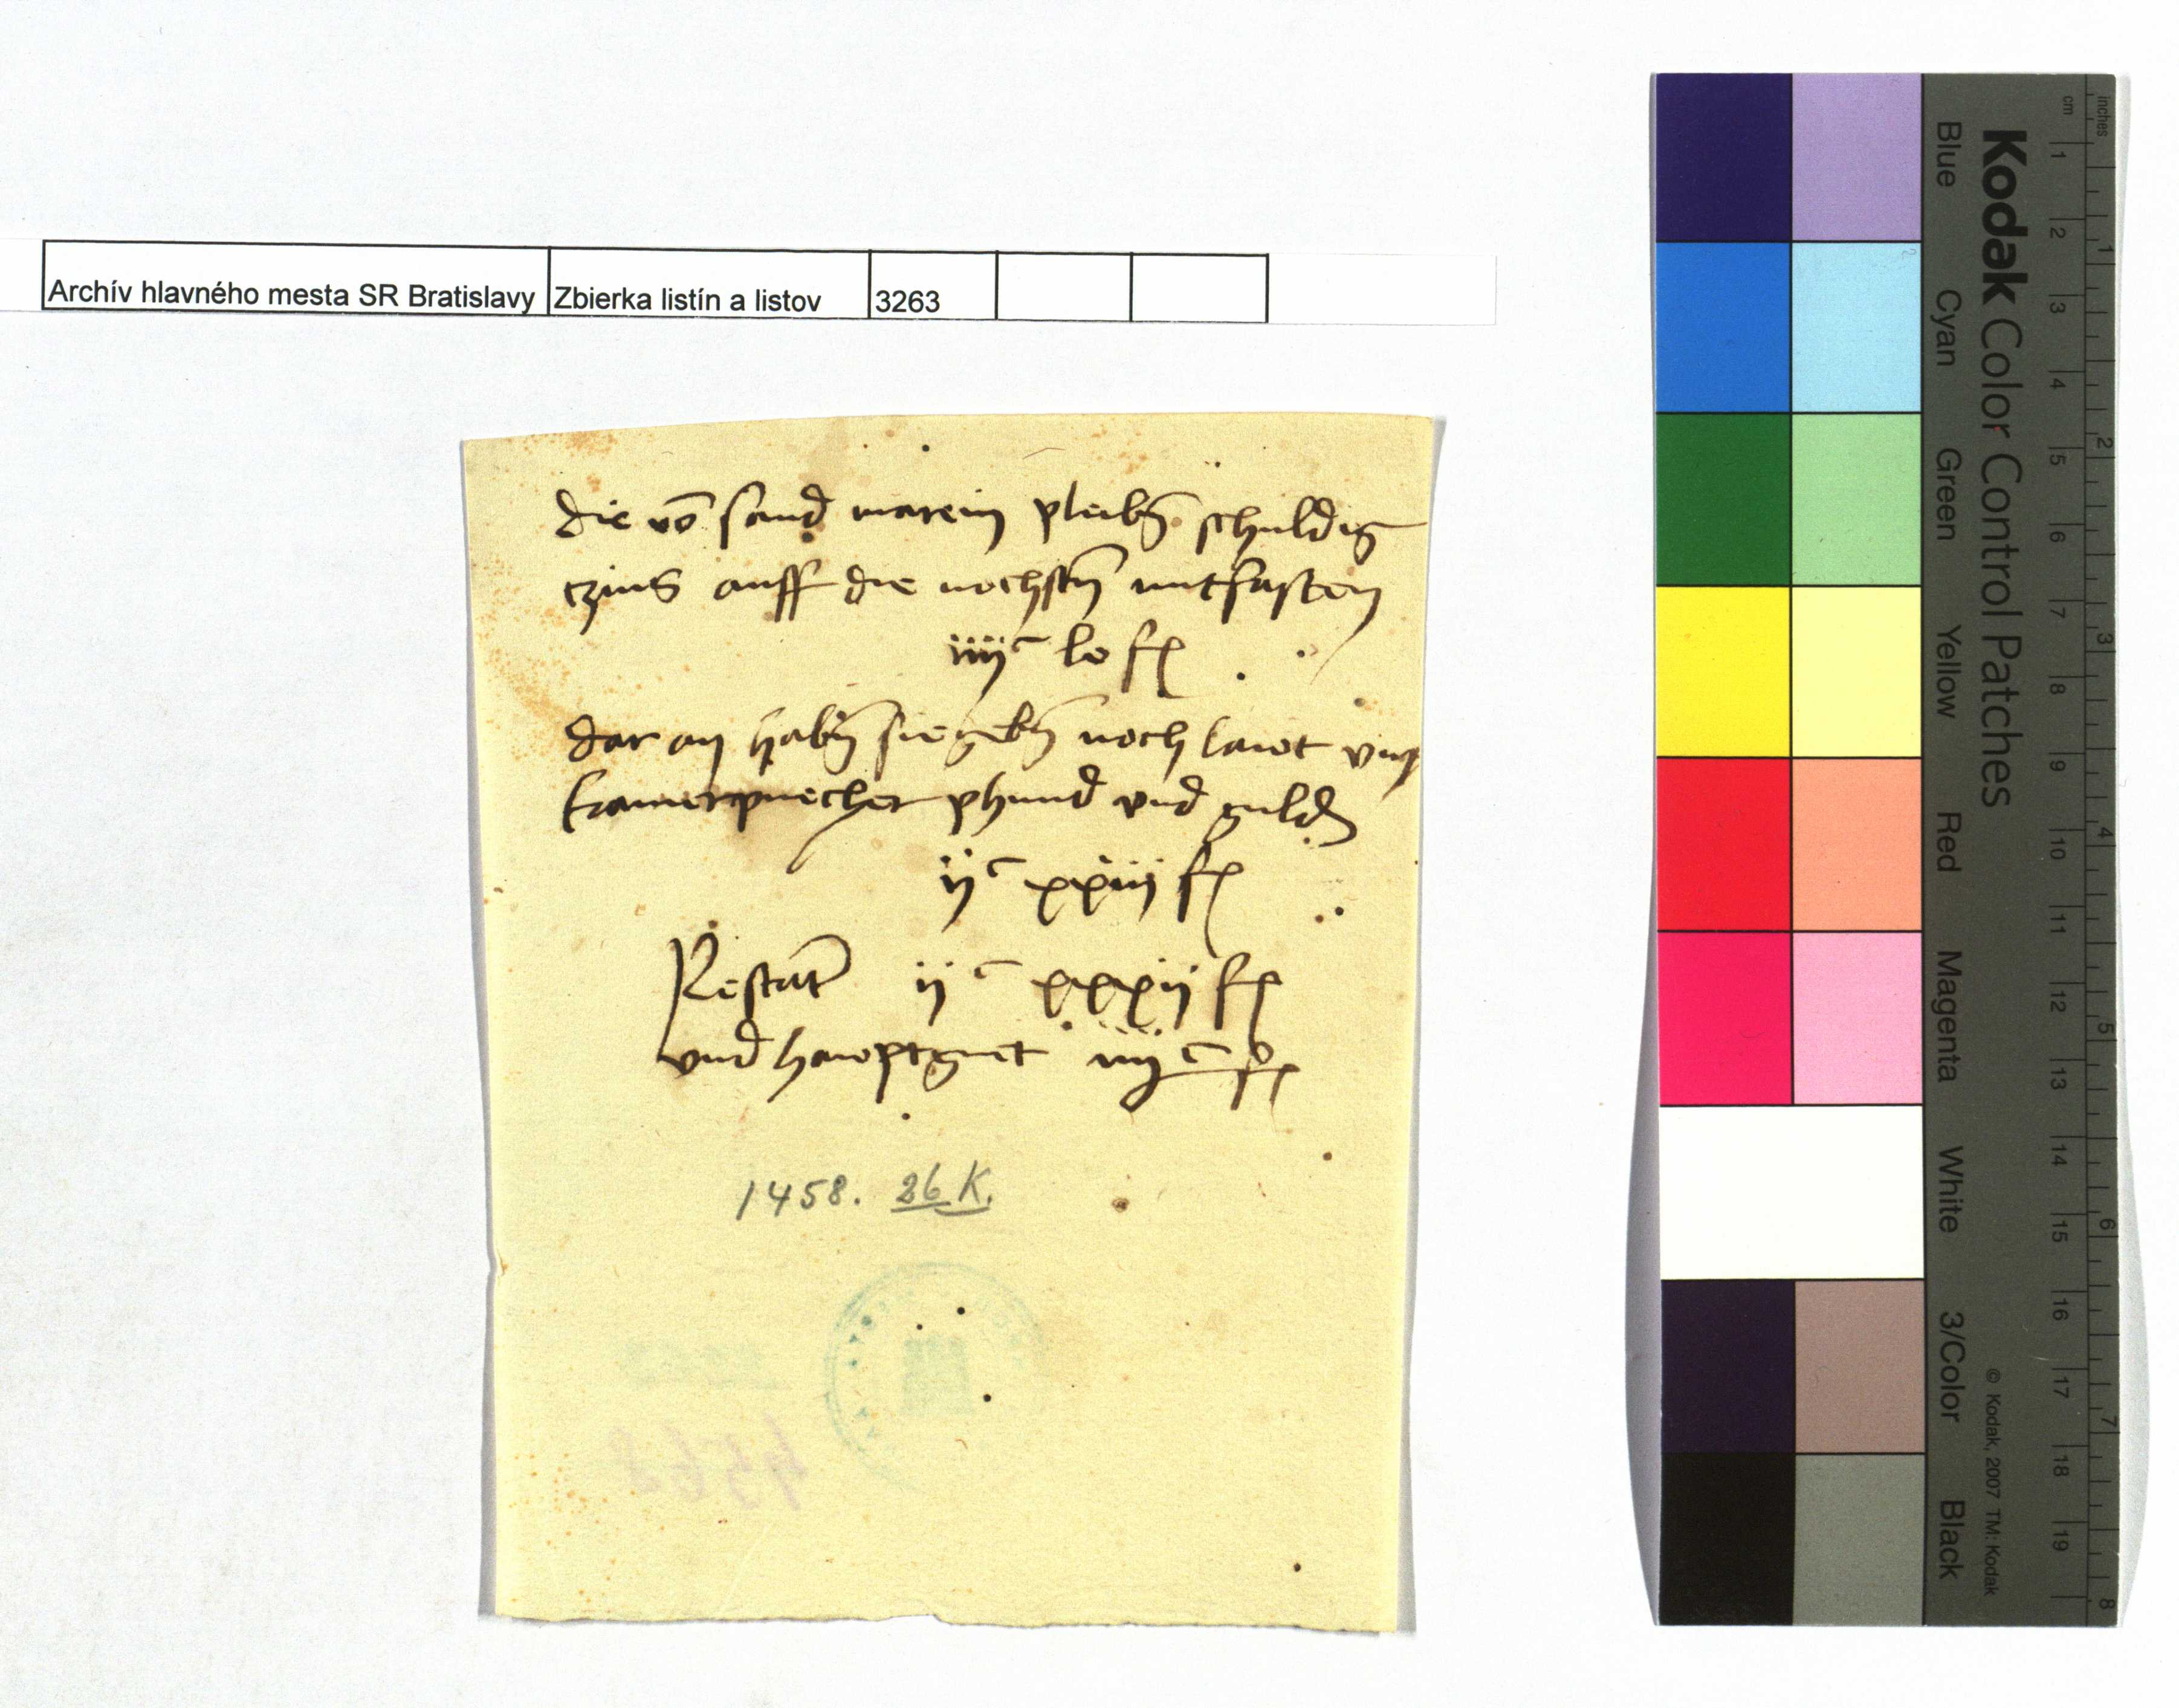 Archív hlavného mesta SR Bratislavy Zbierka listín a listov 3263
die vō sand marein pleibn̄ schuldig
czins auff die nechstn̄ mitfasten
iiijᶜ lv fl
dar an habn̄ sie gebn̄ noch laut vnſ
kamerpuecher phund vnd guldn̄
ijᶜ xxiij fl
Restat ijᶜ xxxij fl
vnd hauptguet iiijᶜ fl
1458. 26 K.
4568
Kodak Color Control Patches
Blue Cyan Green Yellow Red Magenta White 3/Color Black
© Kodak, 2007 TM: Kodak
cm 1 2 3 4 5 6 7 8 9 10 11 12 13 14 15 16 17 18 19
inches 1 2 3 4 5 6 7 8